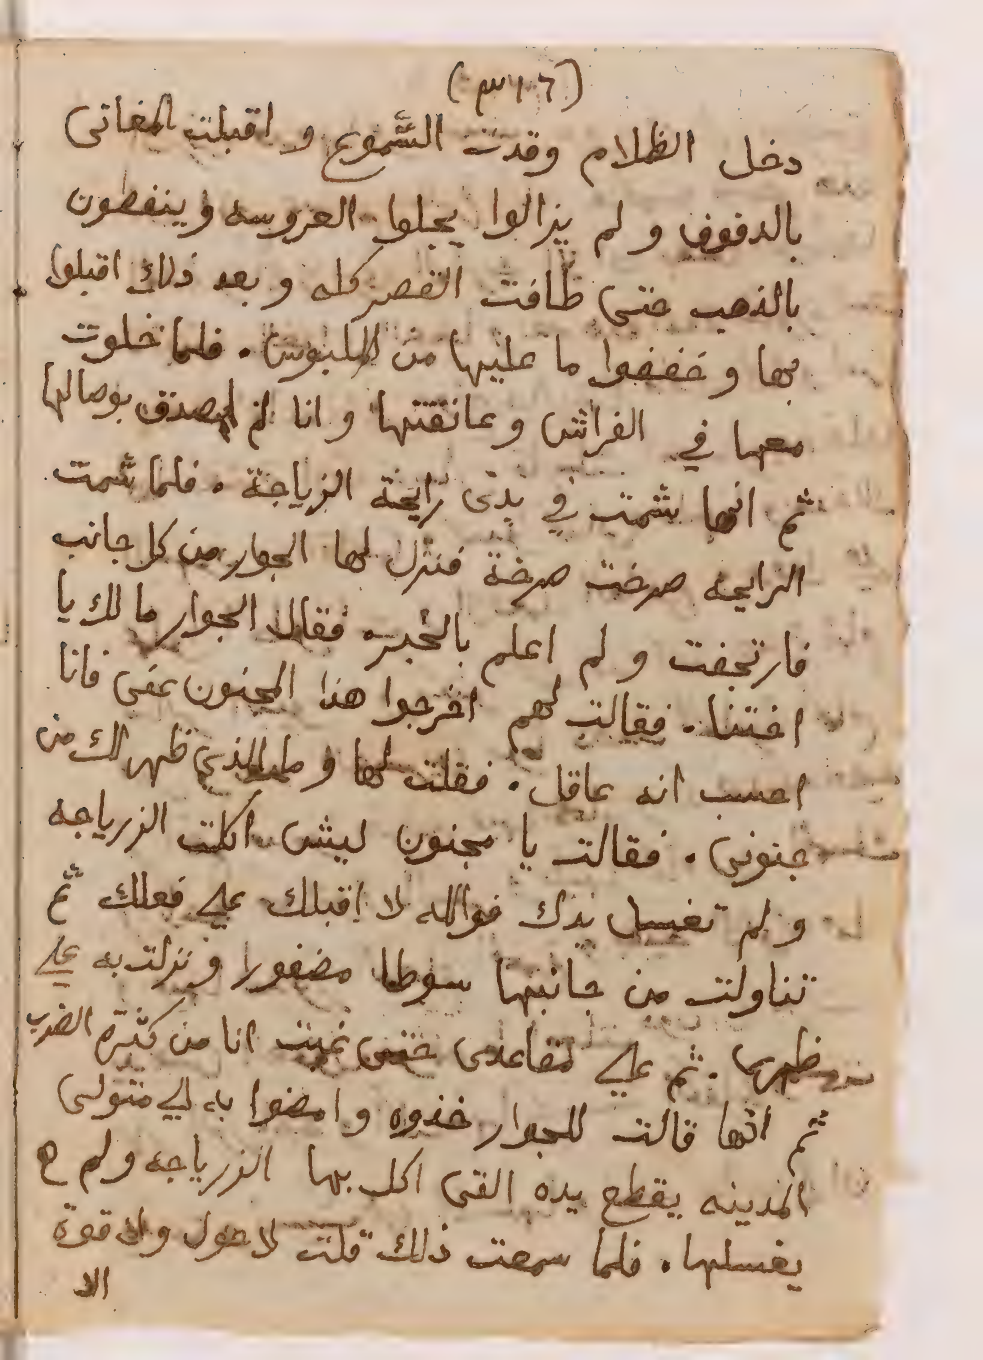 دخل الظلام وقدت الشموع و اقبلت المغاني
بالدفوف و لم يزالوا يجلوا العروسه و ينقطون
بالذهب حتى طافت القصر كله و بعد ذلك اقبلوا
بها و خففوا ما عليها من الملبوس . فلما خلوت
معها في الفراش و عانقتها و انا لم اصدق بوصالها
ثم انها شمت في يدى رايحة الزرباجة . فلما شمت
الرايحه صرخت صرخة فنزل لها الجوار من كل جانب
فارتجفت و لم اعلم بالخبر . فقال الجوار ما لك يا
اختنا . فقالت لهم اخرجوا هذا المجنون عنى فانا
احسب انه عاقل . فقلت لها و ما الذي ظهر لك من
جنوني . فقالت يا مجنون ليش اكلت الزرباجه
و لم تغسل يدك فوالله لا اقبلك على فعلك ثم
تناولت من جانبها سوطا مضفورا و نزلت به على
ظهرى . ثم على مقاعدى حتى غبت انا من كثرة الضرب
ثم انها قالت للجوار خذوه و امضوا به الى متولى
المدينه يقطع يده التى اكل بها الزرباجه و لم
يغسلها . فلما سمعت ذلك قلت لا حول و لا قوة
الا